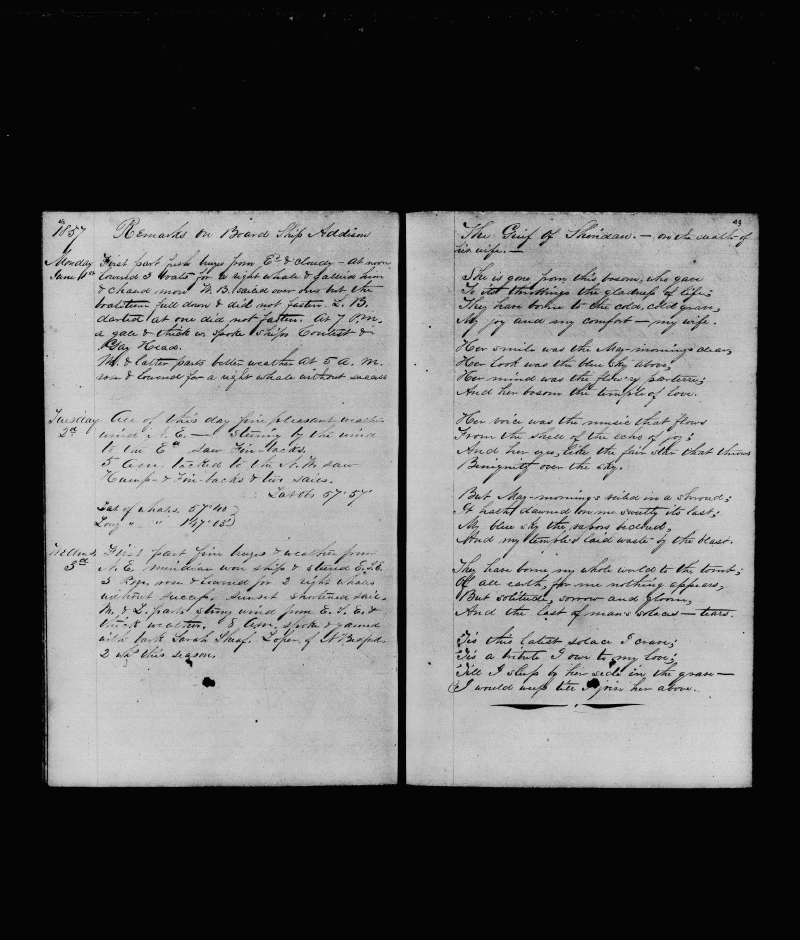 1857 Remarks on Board Ship Addison
Monday First part fresh breezes from Ed & cloudy - At noon
June 1st lowered 3 boats for a right whale & gallied him
& chased more W. B. sailed over one but the
boatsteerer fell down & did not fasten. L. B.
darted at one did not fasten. At 7 P.M.
a gale & thick w. spoke Ships Contest &
Gay Head.
M. & latter parts better weather At 5 A. M.
rose & lowered for a right whale without success
Tuesday All of this day fine pleasant weather
2d wind N. E. — Steering by the wind
to the Ed saw Fin-backs.
5 A.M. tacked to the N. W. saw
Hump- & Fin-backs & two sails.
Lat Ob 57° 57
Lat of whales. 57° 40
Long " " 147° 15
Wednes First part fine breezes & weather from
3d N. E. meridian wore ship & steered E.S.E.
3 P.M. rose & lowered for 2 right whales
without success, sunset shortened sail.
M. & L. parts strong wind from E. S. E. &
thick weather. 8 A.M. spoke & gamed
with bark Sarah Sheaf. Loper of N Bedford
2 whs this season.
49
The Grief of Sheridan. — on the death of
his wife. —
She is gone from this bosom, who gave
To all things the gladness of life;
They have borne to the cold, cold grave,
My joy and my comfort — my wife.
Her smile was the May-morning's dear,
Her look was the blue sky above,
Her mind was the flow'ry parterre;
And her bosom the temple of love.
Her voice was the music that flows
From the shell of the echo of joy;
And her eyes, like the fair star that throws
Benignity over the sky.
But May-mornings veiled in a shroud;
It hath dawned on me sweetly its last;
My blue sky the vapors becloud,
And my temple's laid waste by the blast.
They have borne my whole world to the tomb;
Of all earth, for me nothing appears,
But solitude, sorrow and gloom,
And the last of man's solaces — tears.
Tis this latest solace I crave;
Tis a tribute I owe to my love;
Till I sleep by her side in the grave —
I would weep till I join her above.